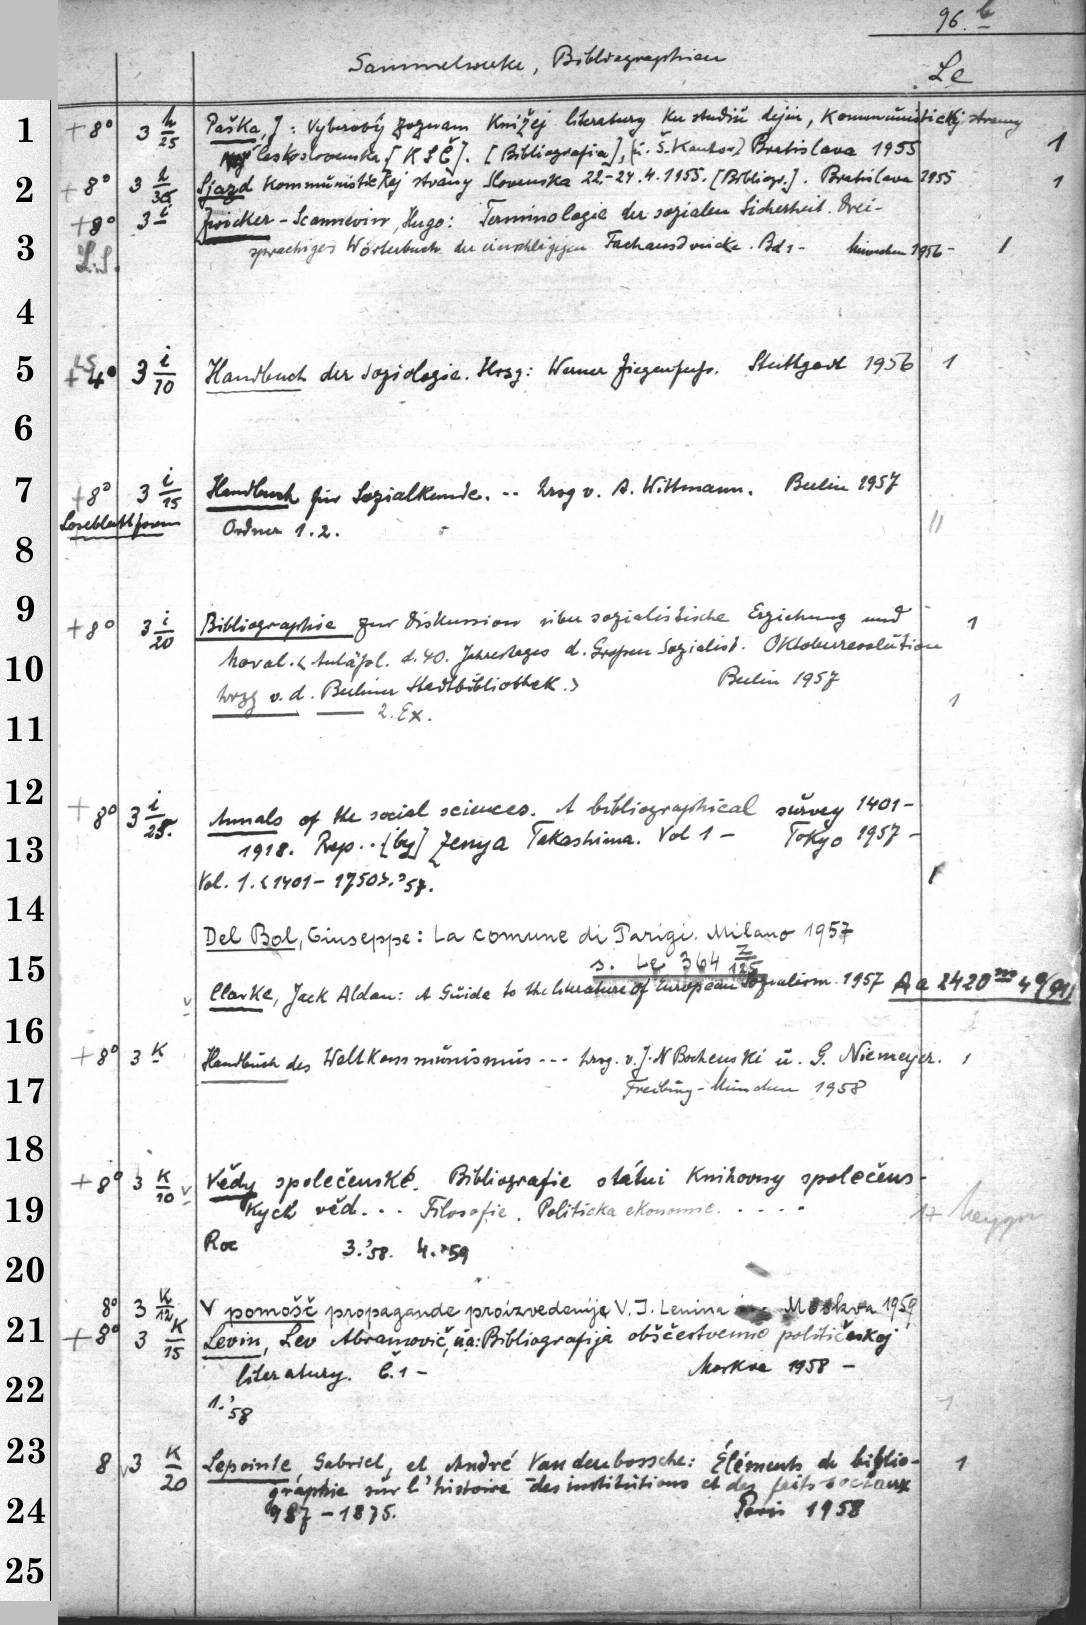 96.b
Sammelwerke, Bibliographien
Le
1 +8° 3 h/25 Paška, J: Vyberový zoznam Knižej literatury ku studiu dejin, Kommunistickej strany 1
Československa [KSČ]. [Bibliografia], [u. Š. Kantor] Bratislava 1955
2 +8° 3 h/30 Sjazd Kommunistickej strany Slovenska 22.-24.4.1955. [Bibliogr.]. Bratislava 1955 1
+8° 3 i Zwicker-Scannevin, Hugo: Terminologie der sozialen Sicherheit. Drei-
3 L.S. sprachiges Wörterbuch der einschlägigen Fachausdrücke. Bd 1- München 1956- 1
4
LS
5 +4° 3 i/10 Handbuch der Soziologie. Hrsg: Werner Ziegenfuss. Stuttgart 1956 1
6
7 +8° 3 i/15 Handbuch für Sozialkunde. .. hrsg v. A. Wittmann. Berlin 1957
Loseblattform Ordner 1.2. 11
8
9 +8° 3 i/20 Bibliographie zur Diskussion über sozialistische Erziehung und 1
10 Moral. < Anläßl. d. 40. Jahrestages d. Grossen Sozialist. Oktoberrevolution
hrsg v. d. Berliner Stadtbibliothek.> Berlin 1957
11 2. Ex. 1
12 +8° 3 i/25. Annals of the social sciences. A bibliographical survey 1401-
13 1918. Prep. .. [by] Zenya Takashima. Vol 1 - Tokyo 1957 -
Vol. 1. <1401 - 1750>. '57. 1
14
Del Bol, Giuseppe: La comune di Parigi. Milano 1957
15 s. Le 364 z/125
v Clarke, Jack Aldan: A Guide to the literature of European Socialism. 1957 Aa 2420 m 4°(91)
16 +8° 3 K Handbuch des Weltkommunismus --- hrsg. v. J.M Bochenski u. G. Niemeyer. 1
17 Freiburg-München 1958
18
+8° 3 K/10 v Vědy společenské. Bibliografie státni Knihovny společens-
19 kych věd. . . Filosofie. Politicka ekonomie. . . . . 17
Roc 3.'58. 4.'59
20
8° 3 K/12 V pomošč propagande proizvedenije V.I. Lenina Moskva 1959
21 +8° 3 K/15 Levin, Lev Abramovič, u.a: Bibliografija obščestvenno političeskoj
literatury. Č.1 - Moskva 1958 -
22 1.'58 1
23 8 v 3 K/20 Lepointe, Gabriel, et André Vandenbossche: Éléments de biblio- 1
graphie sur l'histoire des institutions et des faits sociaux
24 987 - 1875. Paris 1958
25